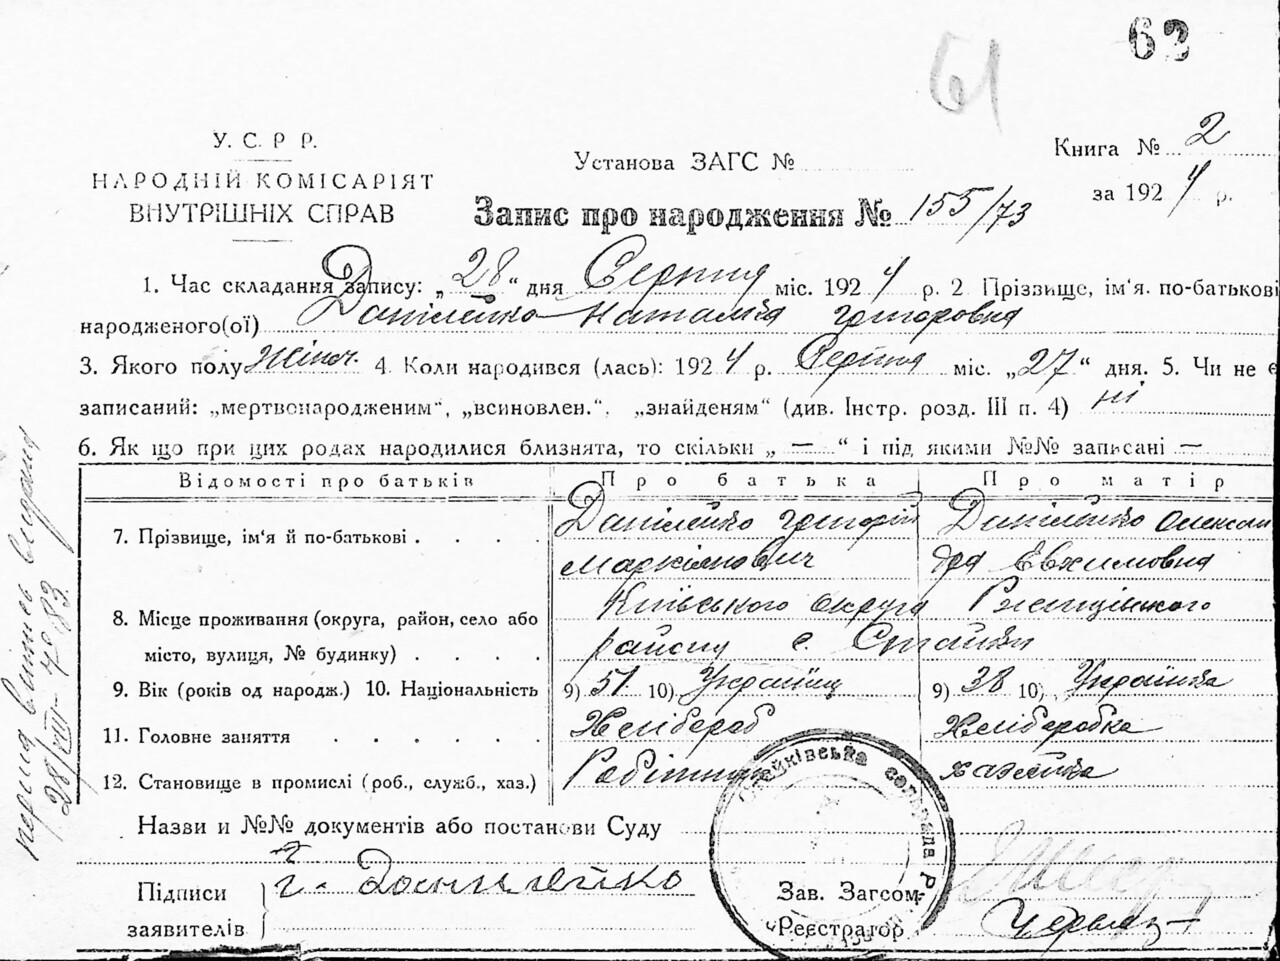 62
61
У. С. Р Р.
НАРОДНІЙ КОМІСАРІЯТ
ВНУТРІШНІХ СПРАВ
Установа ЗАГС №
Книга № 2
за 1924 р.
Запис про народження № 155/73
1. Час складання запису: „28“ дня Серпня міс. 1924 р. 2 Прізвище, ім'я. по-батькові
народженого(ої) Данілейко Наталка Григоровна
3. Якого полу Жіноч. 4. Коли народився (лась): 1924 р. Серпня міс. „27“ дня. 5. Чи не є
записаний: „мертвонародженим“, „всиновлен.“, „знайденям“ (див. Інстр. розд. III п. 4) ні
6. Як що при цих родах народилися близнята, то скільки „ — “ і під якими №№ записані —
Відомості про батьків Про батька Про матір
7. Прізвище, ім'я й по-батькові . . . . Данілейко Григорій Данілейко Олексан
Маркіянович дра Євхимовна
8. Місце проживання (округа, район, село або Київського округа Ржищівського
місто, вулиця, № будинку) . . . . району с. Стайки
9. Вік (років од народж.) 10. Національність 9) 51 10) Українец 9) 38 10) Українка
11. Головне заняття . . . . . . Хлібороб Хліборобка
12. Становище в промислі (роб., служб., хаз.) Робітник хазяйка
Назви и №№ документів або постанови Суду
Підписи
заявителів
Г. Данилейко
Зав. Загсом
Реєстратор
Стайківська сельрада
перша випись видана
28/VIII- № 83.